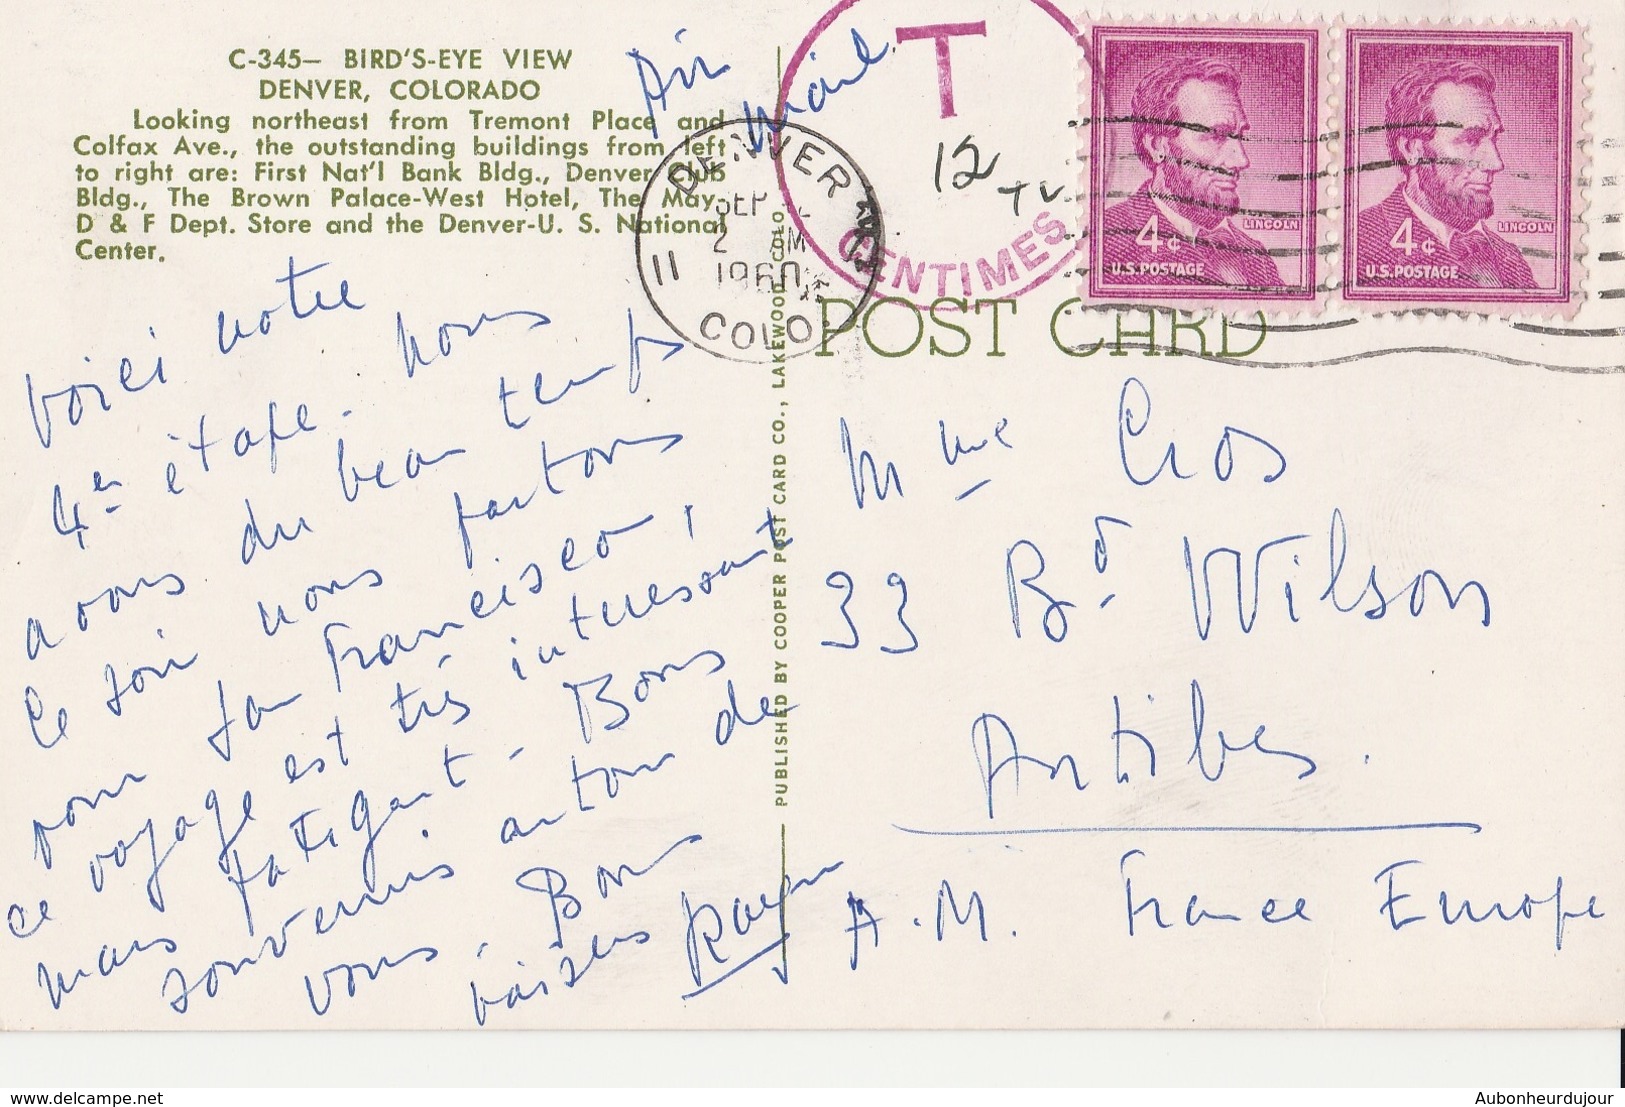 C-345— BIRD'S-EYE VIEW
DENVER, COLORADO
Looking northeast from Tremont Place and
Colfax Ave., the outstanding buildings from left
to right are: First Nat'l Bank Bldg., Denver Club
Bldg., The Brown Palace-West Hotel, The May-
D & F Dept. Store and the Denver-U. S. National
Center.
Air
Mail
DENVER
SEP
2 AM
1960
11
COLO.
T
12
CENTIMES
4¢
LINCOLN
U.S. POSTAGE
4¢
LINCOLN
U.S. POSTAGE
POST CARD
PUBLISHED BY COOPER POST CARD CO., LAKEWOOD, COLO.
Voici notre
4en étape. Nous
avons du beau temps
Ce soir nous partons
pour San Francisco,
ce voyage est très interessant
mais fatigant. Bons
souvenirs autour de
vous. Bons
baisers
Mme Cros
33 Bd. Wilson
Antibes.
A.M. France Europe
www.delcampe.net
Aubonheurdujour